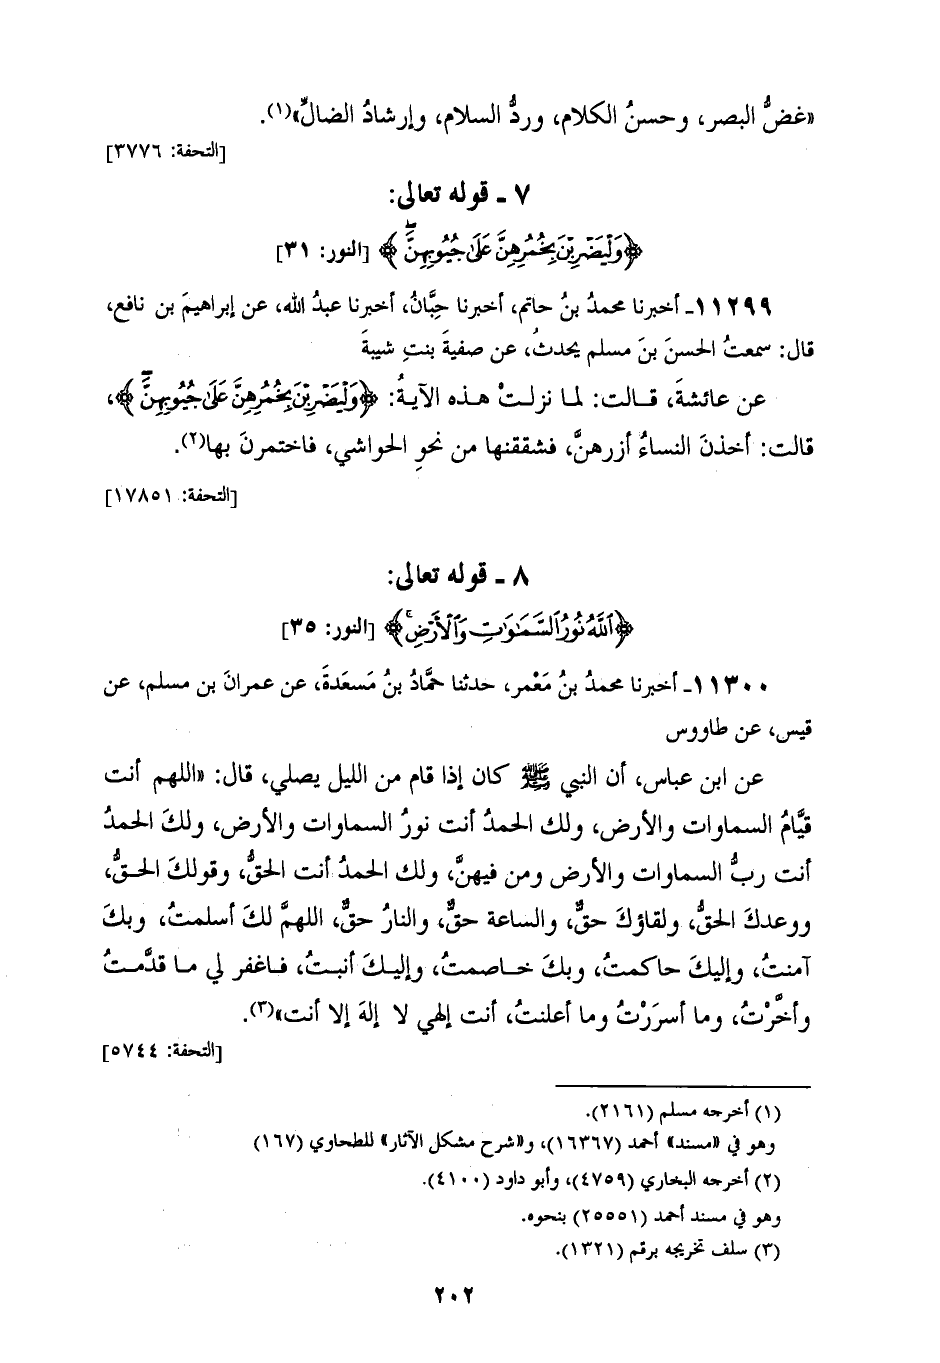 «غضُّ البصر، وحسنُ الكلام، وردُّ السلام، وإرشادُ الضالِّ»(١).
[التحفة: ٣٧٧٦]
٧ ـ قوله تعالى:
﴿وَلْيَضْرِبْنَ بِخُمُرِهِنَّ عَلَىٰ جُيُوبِهِنَّ﴾ [النور: ٣١]
١١٢٩٩ـ أخبرنا محمدُ بنُ حاتم، أخبرنا حِبَّانُ، أخبرنا عبدُ الله، عن إبراهيمَ بن نافع،
قال: سمعتُ الحسنَ بنَ مسلم يحدثُ، عن صفيةَ بنتِ شيبةَ
عن عائشةَ، قالت: لما نزلتْ هذه الآيةُ: ﴿وَلْيَضْرِبْنَ بِخُمُرِهِنَّ عَلَىٰ جُيُوبِهِنَّ﴾،
قالت: أخذنَ النساءُ أزرهنَّ، فشققنها من نحوِ الحواشي، فاختمرنَ بها(٢).
[التحفة: ١٧٨٥١]
٨ ـ قوله تعالى:
﴿ٱللَّهُ نُورُ ٱلسَّمَٰوَٰتِ وَٱلْأَرْضِ﴾ [النور: ٣٥]
١١٣٠٠ـ أخبرنا محمدُ بنُ مَعْمر، حدثنا حمَّادُ بنُ مَسعَدةَ، عن عمرانَ بن مسلم، عن
قيس، عن طاووس
عن ابن عباس، أن النبي ﷺ كان إذا قام من الليل يصلي، قال: «اللهم أنت
قيَّامُ السماوات والأرض، ولك الحمدُ أنت نورُ السماوات والأرض، ولكَ الحمدُ
أنت ربُّ السماوات والأرض ومن فيهنَّ، ولك الحمدُ أنت الحقُّ، وقولكَ الحقُّ،
ووعدكَ الحقُّ، ولقاؤكَ حقٌّ، والساعة حقٌّ، والنارُ حقٌّ، اللهمَّ لكَ أسلمتُ، وبكَ
آمنتُ، وإليكَ حاكمتُ، وبكَ خاصمتُ، وإليكَ أنبتُ، فاغفر لي ما قدَّمتُ
وأخَّرْتُ، وما أسرَرْتُ وما أعلنتُ، أنت إلهي لا إلهَ إلا أنت»(٣).
[التحفة: ٥٧٤٤]
(١) أخرجه مسلم (٢١٦١).
وهو في «مسند» أحمد (١٦٣٦٧)، و«شرح مشكل الآثار» للطحاوي (١٦٧)
(٢) أخرجه البخاري (٤٧٥٩)، وأبو داود (٤١٠٠).
وهو في مسند أحمد (٢٥٥٥١) بنحوه.
(٣) سلف تخريجه برقم (١٣٢١).
٢٠٢